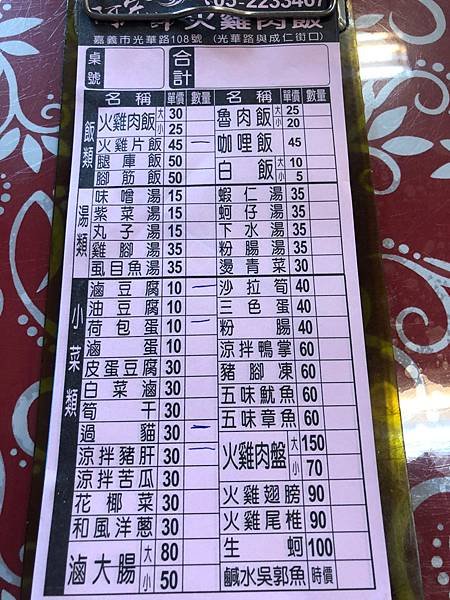 火雞肉飯
05-2233467
嘉義市光華路108號 (光華路與成仁街口)
桌號 合計
名稱 單價 數量 名稱 單價 數量
飯類
火雞肉飯 大 30
小 25
火雞片飯 45 一
腿庫飯 50
腳筋飯 50
魯肉飯 大 25
小 20
咖哩飯 45
白飯 大 10
小 5
湯類
味噌湯 15
紫菜湯 15
丸子湯 15
雞腳湯 35
虱目魚湯 35
蝦仁湯 35
蚵仔湯 35
下水湯 35
粉腸湯 35
燙青菜 30
小菜類
滷豆腐 10 一
油豆腐 10
荷包蛋 10 一
滷蛋 10
皮蛋豆腐 30
白菜滷 30
筍干 30
過貓 30 一
涼拌豬肝 30 一
涼拌苦瓜 30
花椰菜 30
和風洋蔥 30
滷大腸 大 80
小 50
沙拉筍 40
三色蛋 40
粉腸 40
涼拌鴨掌 60
豬腳凍 60
五味魷魚 60
五味章魚 60
火雞肉盤 大 150
小 70
火雞翅膀 90
火雞尾椎 90
生蚵 100
鹹水吳郭魚 時價